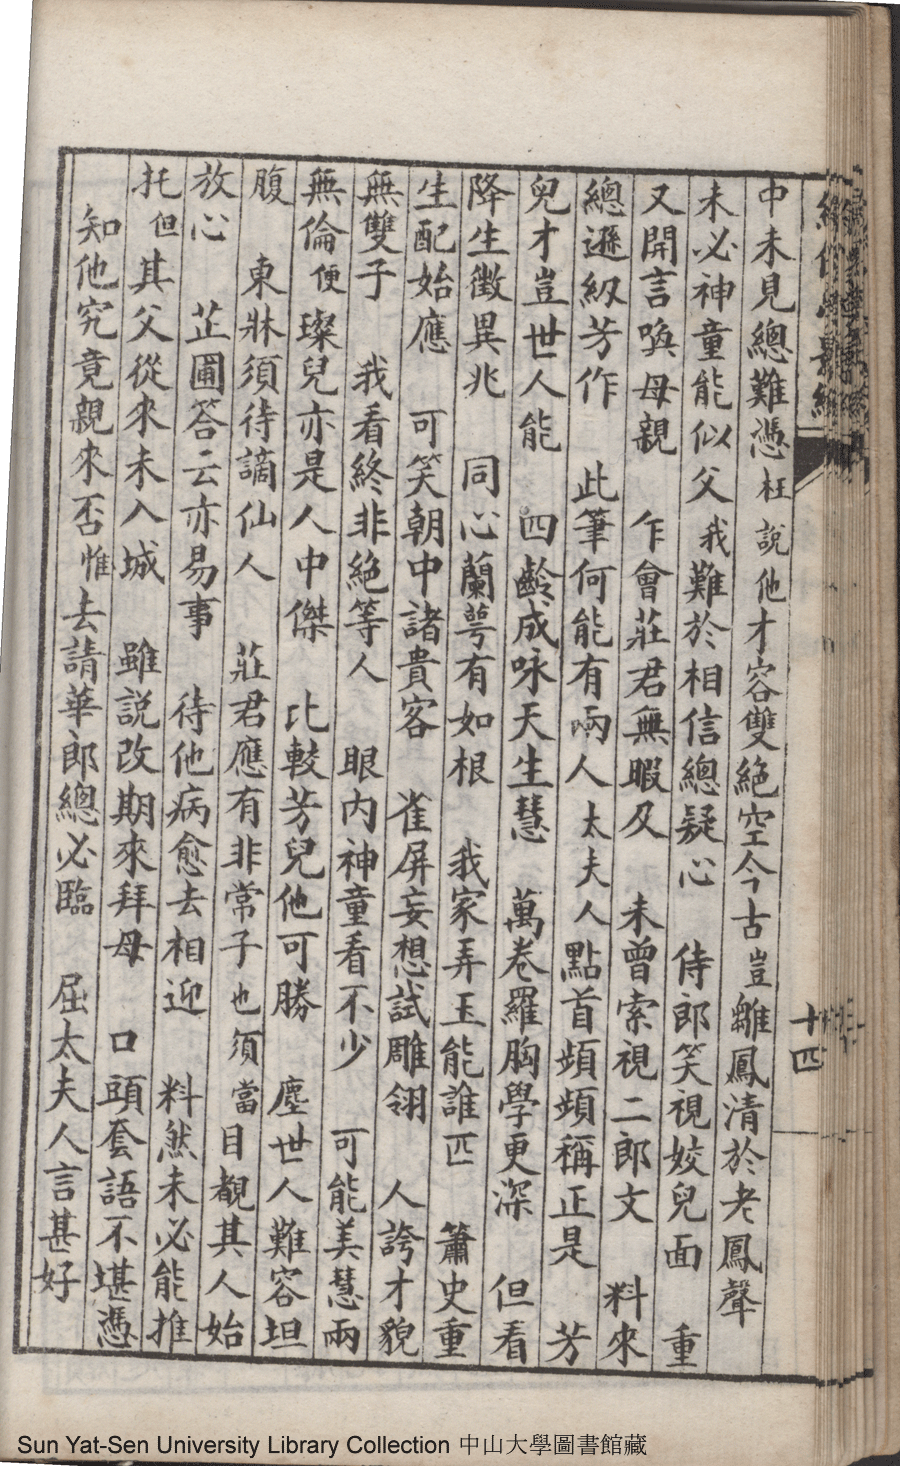 中未見總難憑枉説他才容雙絶空今古豈雛鳳清於老鳳聲
未必神童能似父我難於相信總疑心 侍郎笑視姣兒面 重
又開言喚母親 乍會莊君無暇及 未曾索視二郎文 料來
總遜紉芳作 此筆何能有兩人太夫人點首頻頻稱正是 芳
兒才豈世人能 四齡成咏天生慧 萬卷羅胸學更深 但看
降生徵異兆 同心蘭萼有如根 我家弄玉能誰匹 簫史重
生配始應 可笑朝中諸貴客 雀屏妄想試雕翎 人誇才貌
無雙子 我看終非絶等人 眼内神童看不少 可能美慧兩
無倫便璨兒亦是人中傑 比較芳兒他可勝 塵世人難容坦
腹 東牀須待謫仙人 莊君應有非常子也須當目覩其人始
放心 芷圃答云亦易事 待他病愈去相迎 料然未必能推
托但其父從來未入城 雖説改期來拜母 口頭套語不堪憑
知他究竟親來否惟去請華郎總必臨 屈太夫人言甚好
十四
Sun Yat-Sen University Library Collection 中山大學圖書館藏